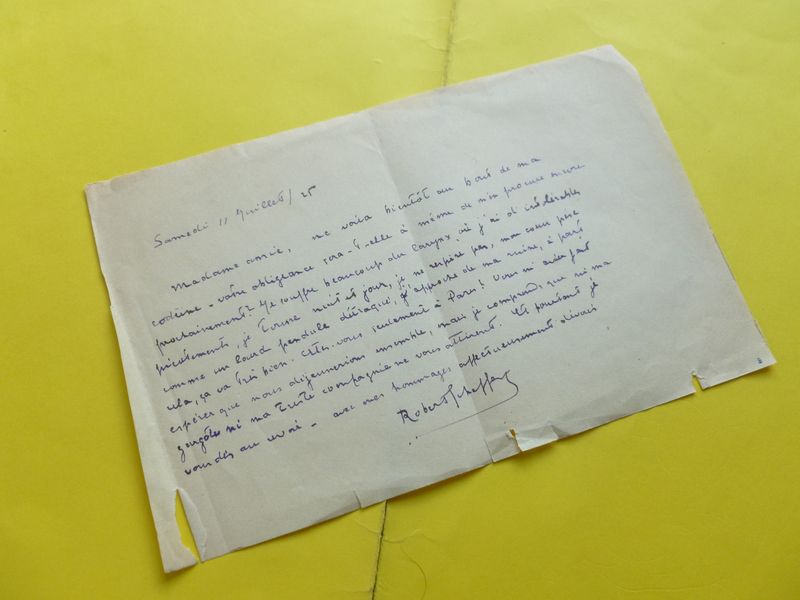 Samedi 11 Juillet / 25
Madame amie, me voici bientôt au bout de ma
codéine - votre obligeance sera-t-elle à même de m'en procurer encore
prochainement? Je souffre beaucoup du larynx où j'ai d'intolérables
picotements, je tousse nuit et jour, je ne respire pas, mon cœur pèse
comme un lourd pendule détraqué, j'approche de ma ruine, à part
cela, ça va très bien. Etes-vous seulement à Paris? Vous m'aviez fait
espérer que nous déjeunerions ensemble, mais je comprends que ni ma
gargote ni ma triste compagnie ne vous attirent. Et pourtant je
voudrais au revoir - avec mes hommages affectueusement dévoués
Robert Scheffer